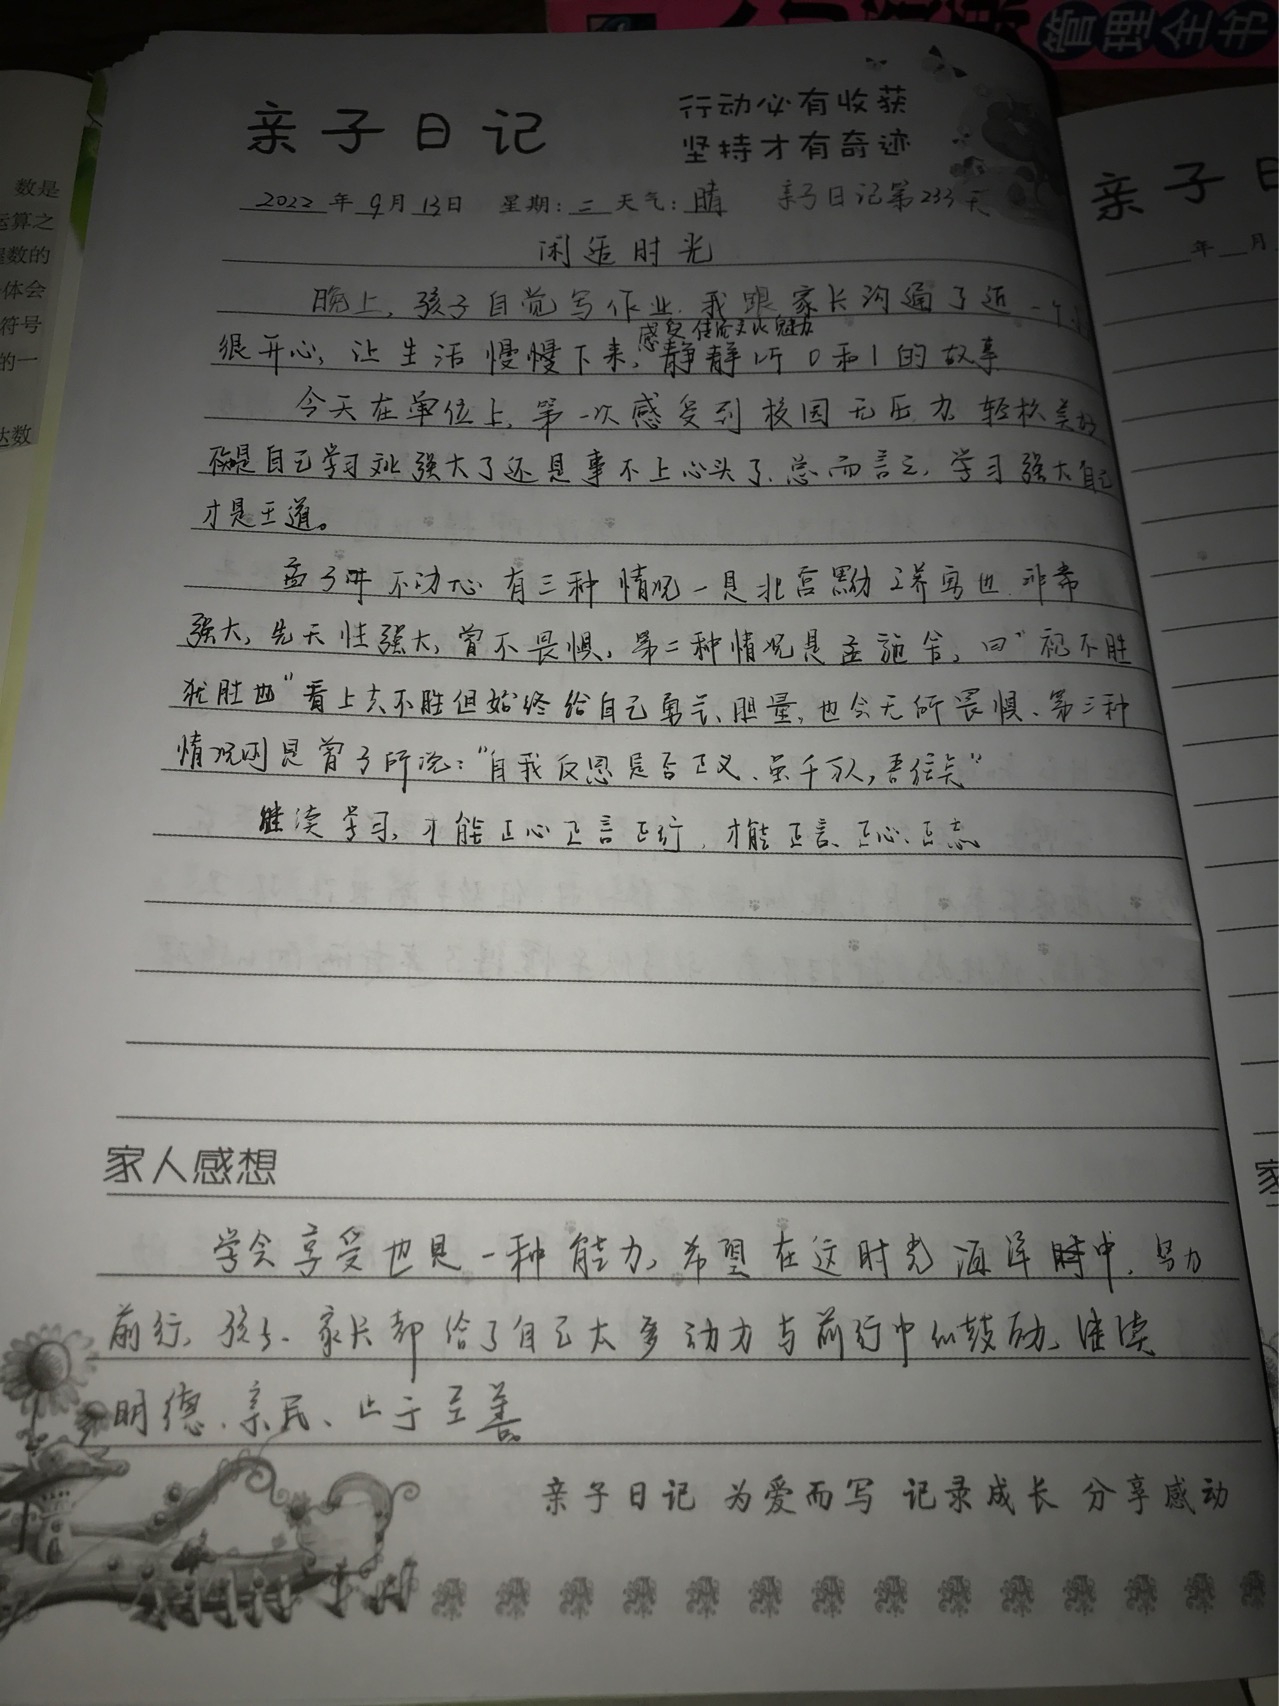 管理全书
数是
运算之
数的
体会
符号
的一
达数
亲子日记
行动必有收获
坚持才有奇迹
2022年9月13日 星期:三天气:晴 亲子日记第233天
闲适时光
晚上,孩子自觉写作业,我跟家长沟通了近一个
感受传统文化魅力
很开心,让生活慢慢下来,静静听0和1的故事
今天在单位上,第一次感受到校园无压力,轻松美好
自己学习 强大了还是事不上心头了,总而言之,学习强大自己
才是王道。
孟子讲不动心有三种情况一是北宫黝之养勇也,非常
强大,先天性强大,曾不畏惧,第二种情况是孟施舍,曰“视不胜
犹胜也”看上去不胜但始终给自己勇气、胆量,也会无所畏惧、第三种
情况则是曾子所说:“自我反思是否正义、虽千万人,吾往矣”
继续学习,才能正心正言正行,才能正言、正心、正志
家人感想
学会享受也是一种能力,希望在这时光海洋 中,努力
前行,孩子、家长都给了自己太多动力与前行中的鼓励,继续
明德、亲民、止于至善
亲子日记 为爱而写 记录成长 分享感动
亲子日
年 月
家